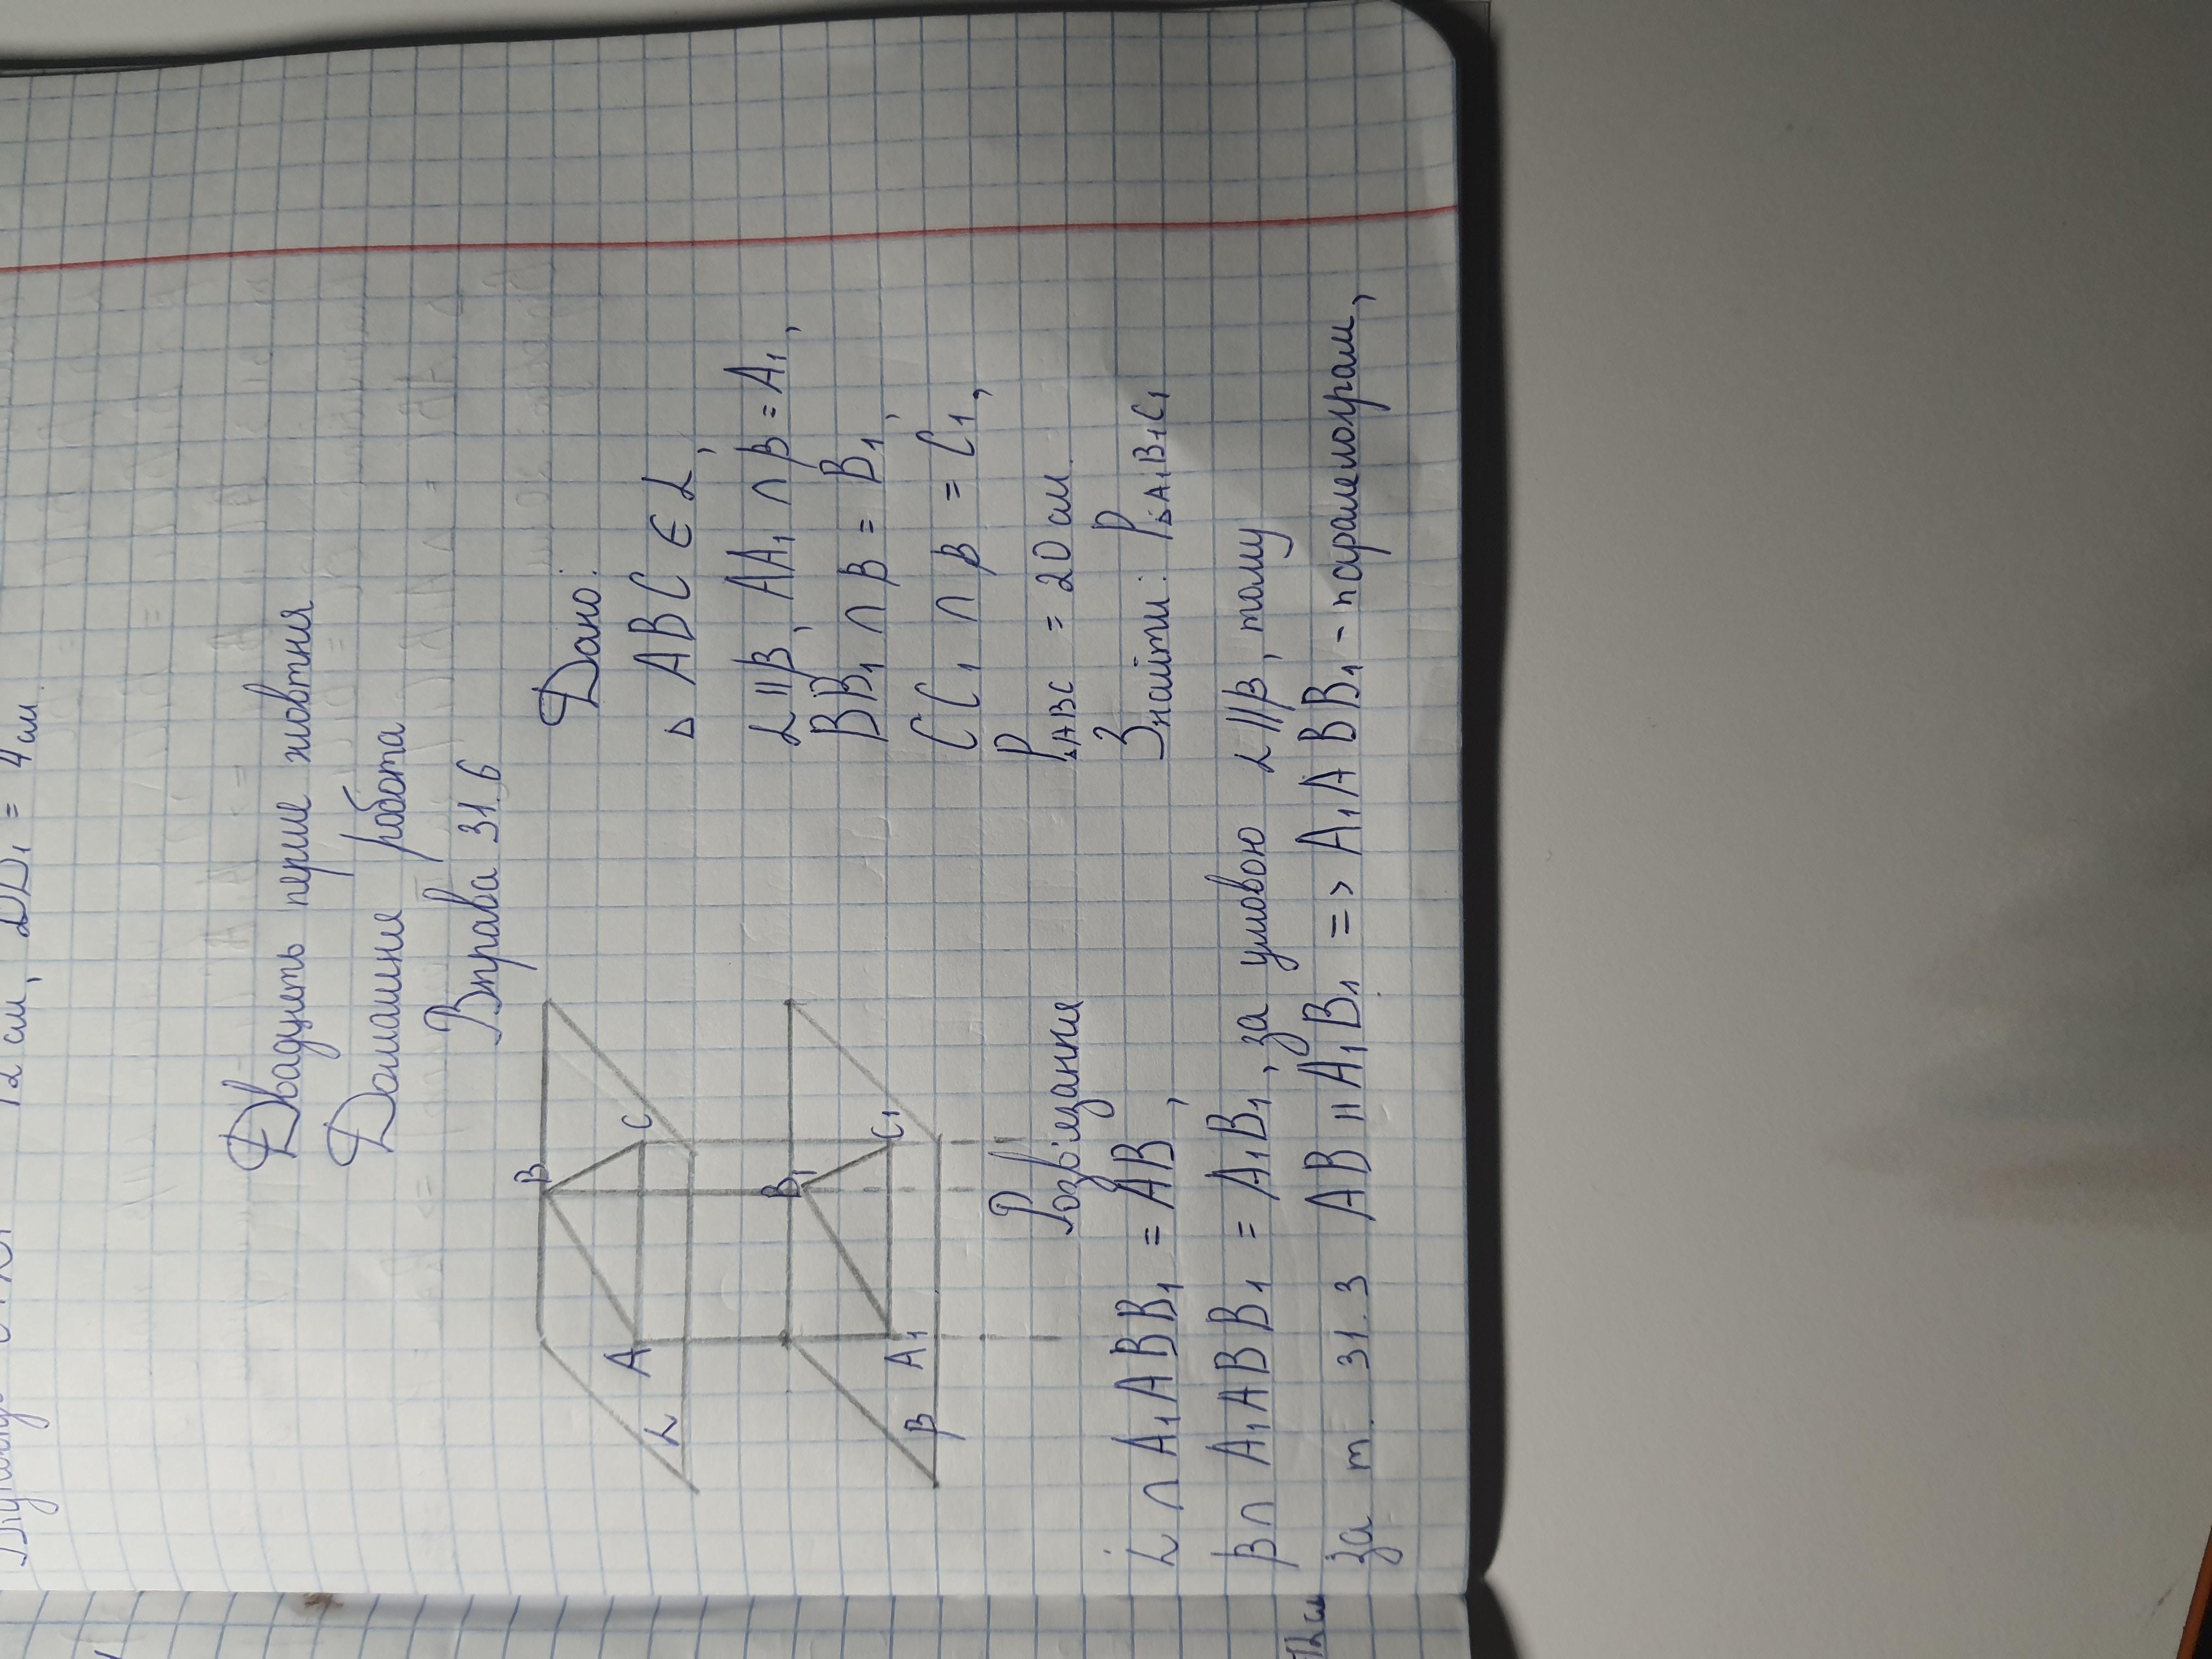 12 см, DD₁ = 4 см.
Двадцять перше жовтня
Домашня робота
Вправа 31.6
Дано:
△ ABC ∈ α,
α || β, AA₁ ∩ β = A₁,
BB₁ ∩ β = B₁,
CC₁ ∩ β = C₁,
P△ABC = 20 см.
Знайти: P△A₁B₁C₁
B
A
C
α
B₁
A₁
C₁
β
Розв'язання
α ∩ A₁ABB₁ = AB,
β ∩ A₁ABB₁ = A₁B₁, за умовою α || β, тому
за т. 31.3 AB || A₁B₁ => A₁ABB₁ - паралелограм,